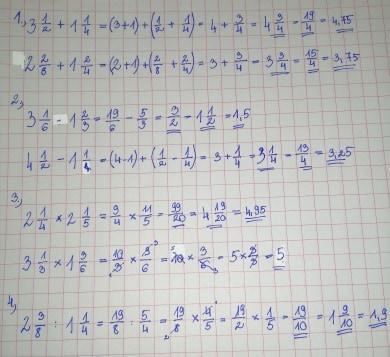 1., 3 1/2 + 1 1/4 = (3+1) + (1/2 + 1/4) = 4 + 3/4 = 4 3/4 = 19/4 = 4,75
2 2/8 + 1 2/4 = (2+1) + (2/8 + 2/4) = 3 + 3/4 = 3 3/4 = 15/4 = 3,75
2., 3 1/6 - 1 2/3 = 19/6 - 5/3 = 3/2 = 1 1/2 = 1,5
4 1/2 - 1 1/4 = (4-1) + (1/2 - 1/4) = 3 + 1/4 = 3 1/4 = 13/4 = 3,25
3., 2 1/4 × 2 1/5 = 9/4 × 11/5 = 99/20 = 4 19/20 = 4,95
3 1/3 × 1 3/6 = 10/3 × 9/6 = 10 × 3/6 = 5 × 3/3 = 5
4., 2 3/8 : 1 1/4 = 19/8 : 5/4 = 19/8 × 4/5 = 19/2 × 1/5 = 19/10 = 1 9/10 = 1,9